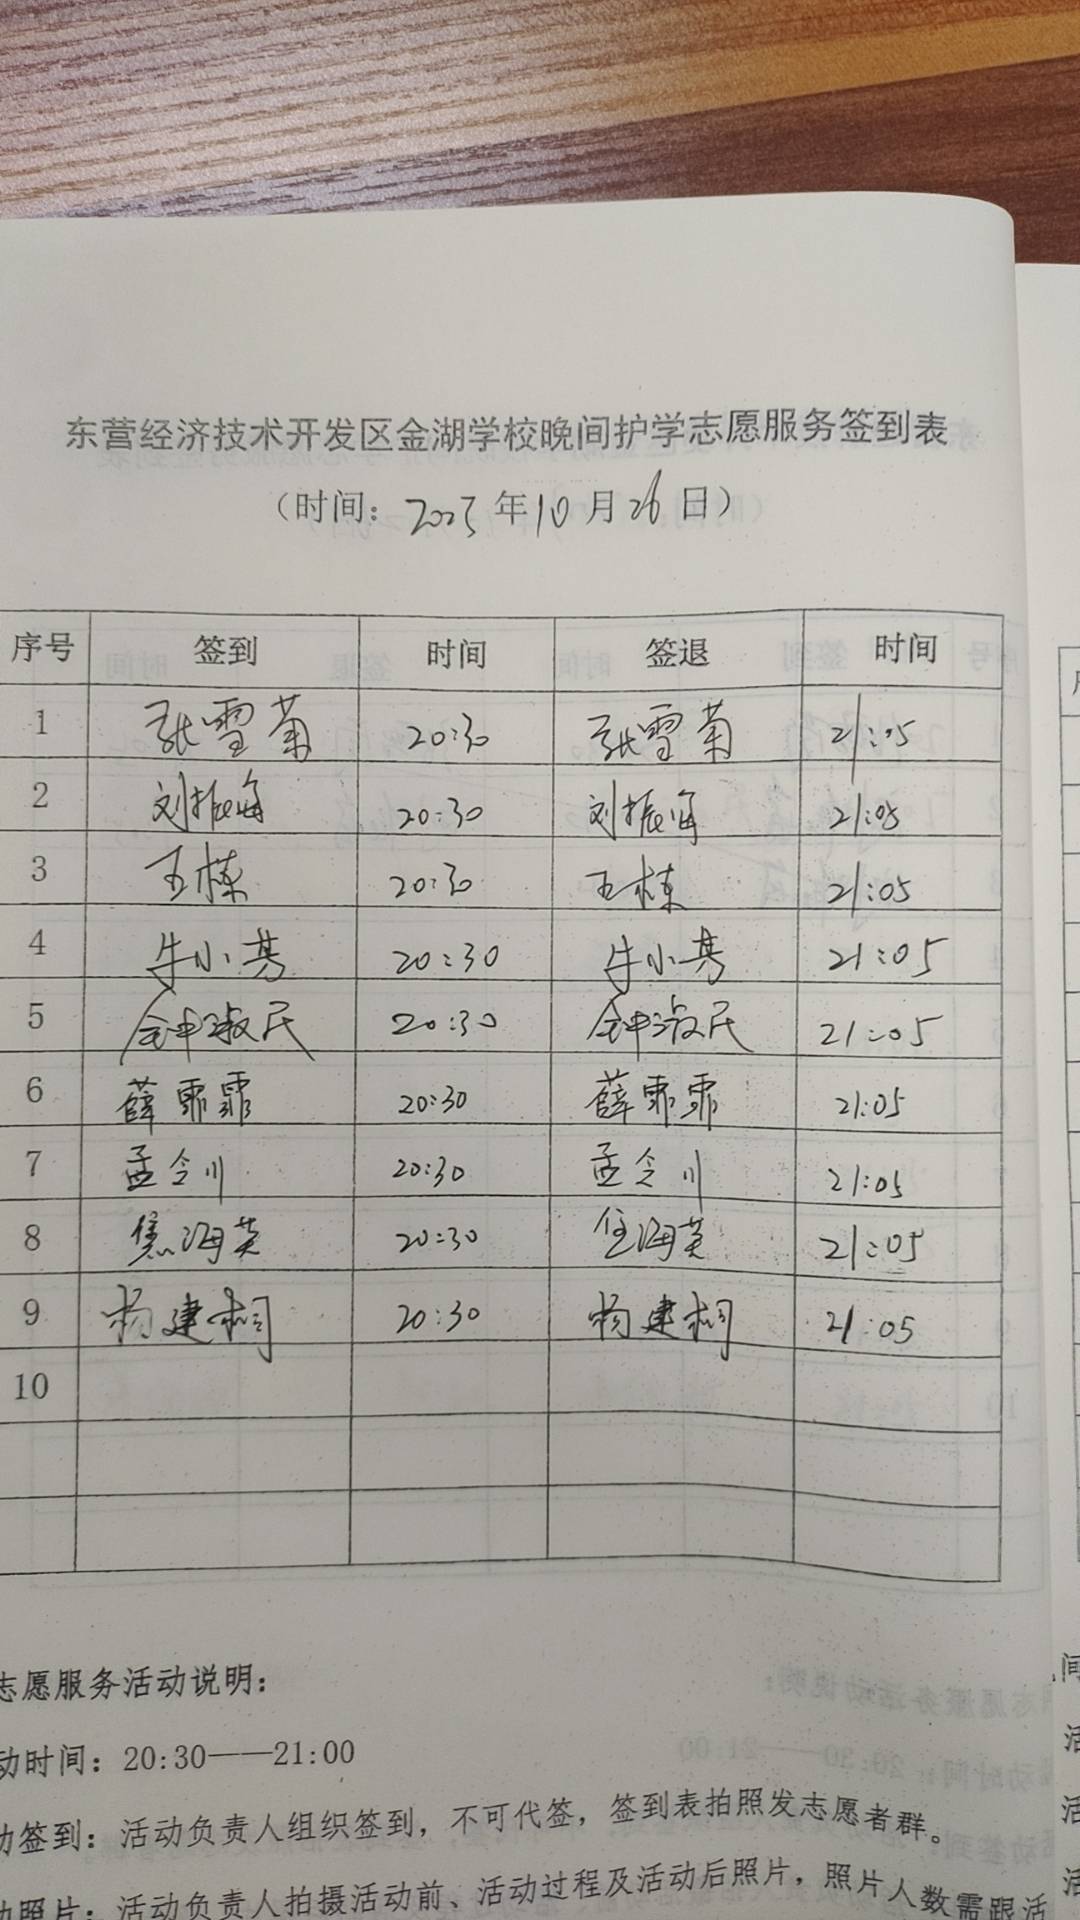 东营经济技术开发区金湖学校晚间护学志愿服务签到表
（时间：2023年10月26日）
序号 签到 时间 签退 时间
1 张雪菊 20:30 张雪菊 21:05
2 刘振海 20:30 刘振海 21:05
3 王栋 20:30 王栋 21:05
4 牛小芳 20:30 牛小芳 21:05
5 钟淑民 20:30 钟淑民 21:05
6 薛霏霏 20:30 薛霏霏 21:05
7 孟令川 20:30 孟令川 21:05
8 焦海英 20:30 焦海英 21:05
9 杨建桐 20:30 杨建桐 21:05
10
志愿服务活动说明：
动时间：20:30——21:00
动签到：活动负责人组织签到，不可代签，签到表拍照发志愿者群。
动照片：活动负责人拍摄活动前、活动过程及活动后照片，照片人数需跟活